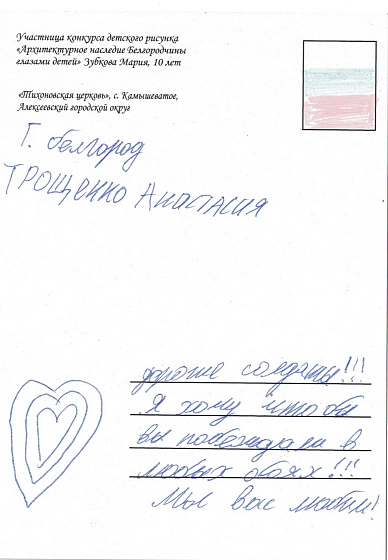 Участница конкурса детского рисунка
«Архитектурное наследие Белгородчины
глазами детей» Зубкова Мария, 10 лет
«Тихоновская церковь», с. Камышеватое,
Алексеевский городской округ
Г. белгород
ТРОЩЕНКО АНАСТАСИЯ
дорогие солдаты!!!
Я хочу что бы
вы побеждали в
любых боях!!!
Мы вас любим!